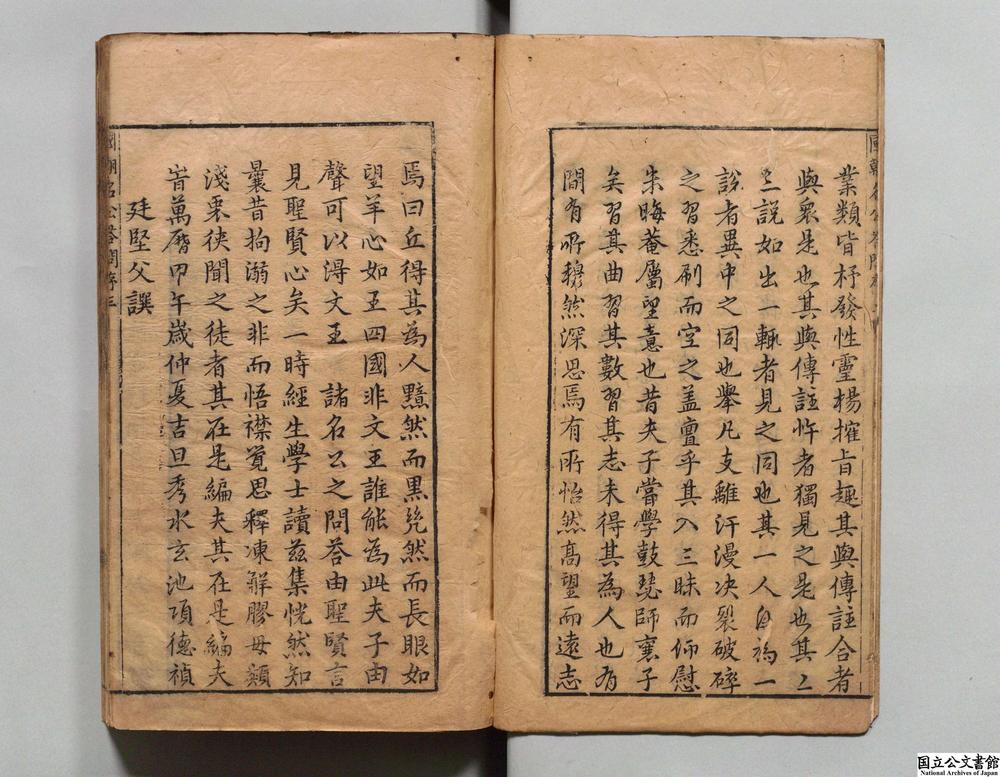 業類皆杼發性靈揚搉旨趣其與傳註合者
與衆是也其與傳註忤者獨見之是也其二
三說如出一轍者見之同也其一人自為一
說者異中之同也擧凡支離汗漫决裂破碎
之習悉刷而空之盖亶乎其入三昧而仰慰
朱晦菴屬望意也昔夫子嘗學鼓琴師襄子
矣習其曲習其數習其志未得其為人也有
間有所穆然深思焉有所怡然高望而遠志
焉曰丘得其為人黮然而黑兊然而長眼如
望羊心如王四國非文王誰能為此夫子由
聲可以淂文王 諸名公之問荅由聖賢言
見聖賢心矣一時經生學士讀茲集恍然知
曩昔拘溺之非而悟襟覚思釋凍解膠毋類
淺衷狹聞之徒者其在是編夫其在是編夫
旹萬曆甲午嵗仲夏吉旦秀水玄池項德禎
廷堅父譔
國朝名公荅問序三
国立公文書館
National Archives of Japan